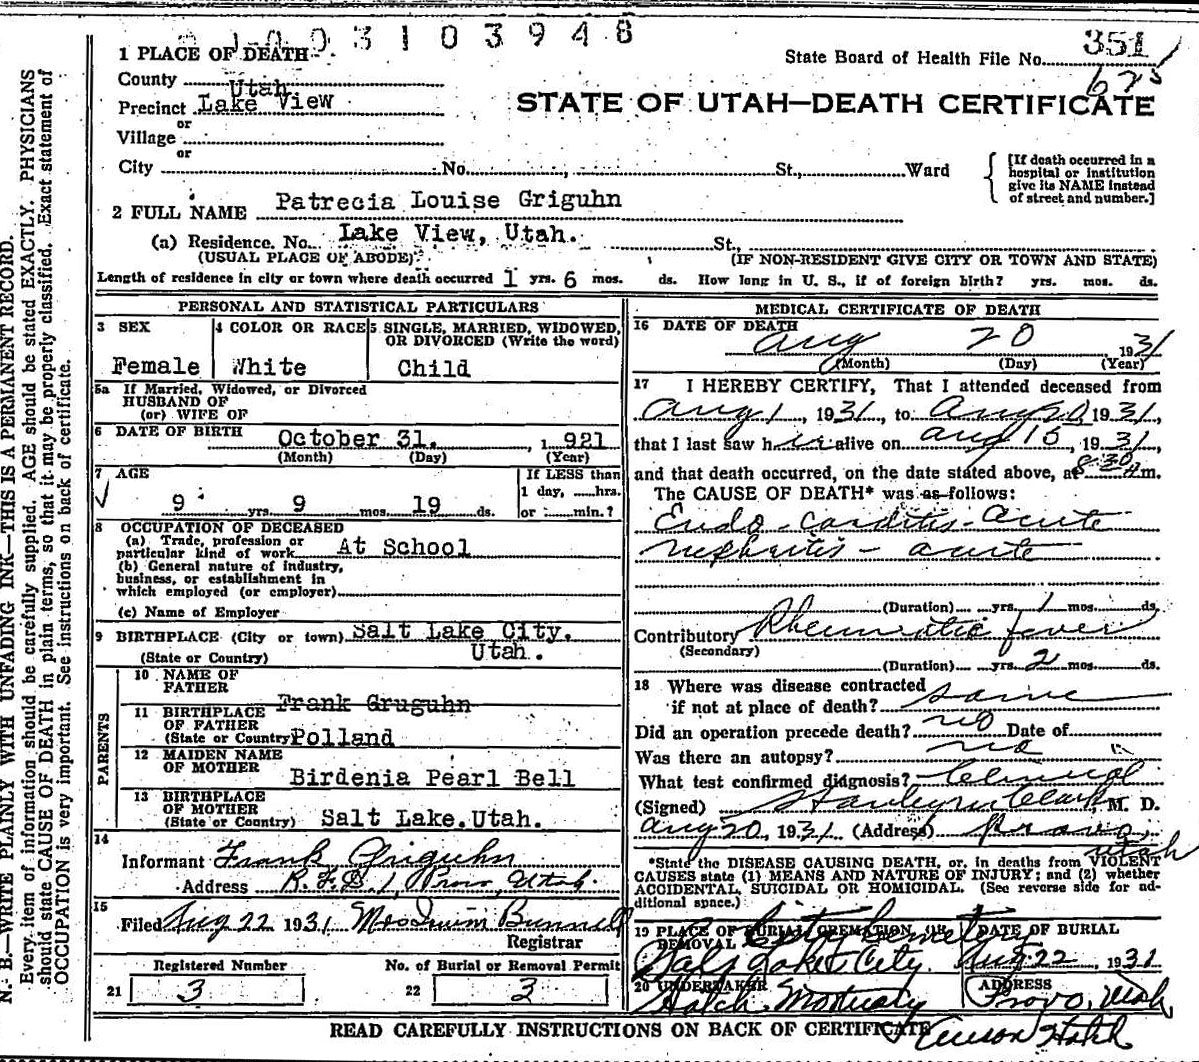 1003103948
1 PLACE OF DEATH
State Board of Health File No. 351
County Utah
Precinct Lake View
STATE OF UTAH—DEATH CERTIFICATE
or
Village
or
City No. St., Ward
[If death occurred in a
hospital or institution
give its NAME instead
of street and number.]
2 FULL NAME Patrecia Louise Griguhn
(a) Residence. No. Lake View, Utah. St.,
(USUAL PLACE OF ABODE) (IF NON-RESIDENT GIVE CITY OR TOWN AND STATE)
Length of residence in city or town where death occurred 1 yrs. 6 mos. ds. How long in U. S., if of foreign birth? yrs. mos. ds.
PERSONAL AND STATISTICAL PARTICULARS
3 SEX
Female
4 COLOR OR RACE
White
5 SINGLE, MARRIED, WIDOWED,
OR DIVORCED (Write the word)
Child
5a If Married, Widowed, or Divorced
HUSBAND OF
(or) WIFE OF
6 DATE OF BIRTH October 31. 1921
(Month) (Day) (Year)
7 AGE
9 yrs. 9 mos. 19 ds.
If LESS than
1 day, hrs.
or min.?
8 OCCUPATION OF DECEASED
(a) Trade, profession or
particular kind of work At School
(b) General nature of industry,
business, or establishment in
which employed (or employer)
(c) Name of Employer
9 BIRTHPLACE (City or town) Salt Lake City.
(State or Country) Utah.
PARENTS
10 NAME OF
FATHER Frank Gruguhn
11 BIRTHPLACE
OF FATHER
(State or Country) Polland
12 MAIDEN NAME
OF MOTHER Birdenia Pearl Bell
13 BIRTHPLACE
OF MOTHER
(State or Country) Salt Lake.Utah.
14
Informant Frank Griguhn
Address R.F.D. 1, Provo, Utah.
15
Filed Aug 22 1931 Bunnell
Registrar
Registered Number
21 3
No. of Burial or Removal Permit
22 3
MEDICAL CERTIFICATE OF DEATH
16 DATE OF DEATH
Aug 20 1931
(Month) (Day) (Year)
17 I HEREBY CERTIFY, That I attended deceased from
Aug 1, 1931, to Aug 20, 1931,
that I last saw her alive on Aug 16, 1931,
and that death occurred, on the date stated above, at 8:30 m.
The CAUSE OF DEATH* was as follows:
Endo-carditis-acute
nephritis - acute
(Duration) yrs. 1 mos. ds.
Contributory Rheumatic fever
(Secondary)
(Duration) yrs. 2 mos. ds.
18 Where was disease contracted
if not at place of death? same
Did an operation precede death? no Date of
Was there an autopsy? no
What test confirmed diagnosis? Clinical
(Signed) Stanley M Clark M. D.
Aug 20, 1931 (Address) Provo, Utah
*State the DISEASE CAUSING DEATH, or, in deaths from VIOLENT
CAUSES state (1) MEANS AND NATURE OF INJURY; and (2) whether
ACCIDENTAL, SUICIDAL OR HOMICIDAL. (See reverse side for ad-
ditional space.)
19 PLACE OF BURIAL, CREMATION, OR
REMOVAL City Cemetery
Salt Lake City
DATE OF BURIAL
Aug 22, 1931
20 UNDERTAKER
Hatch Mortuary
ADDRESS
Provo, Utah
Hatch
READ CAREFULLY INSTRUCTIONS ON BACK OF CERTIFICATE
N. B.—WRITE PLAINLY WITH UNFADING INK—THIS IS A PERMANENT RECORD.
Every item of information should be carefully supplied. AGE should be stated EXACTLY. PHYSICIANS
should state CAUSE OF DEATH in plain terms, so that it may be properly classified. Exact statement of
OCCUPATION is very important. See instructions on back of certificate.